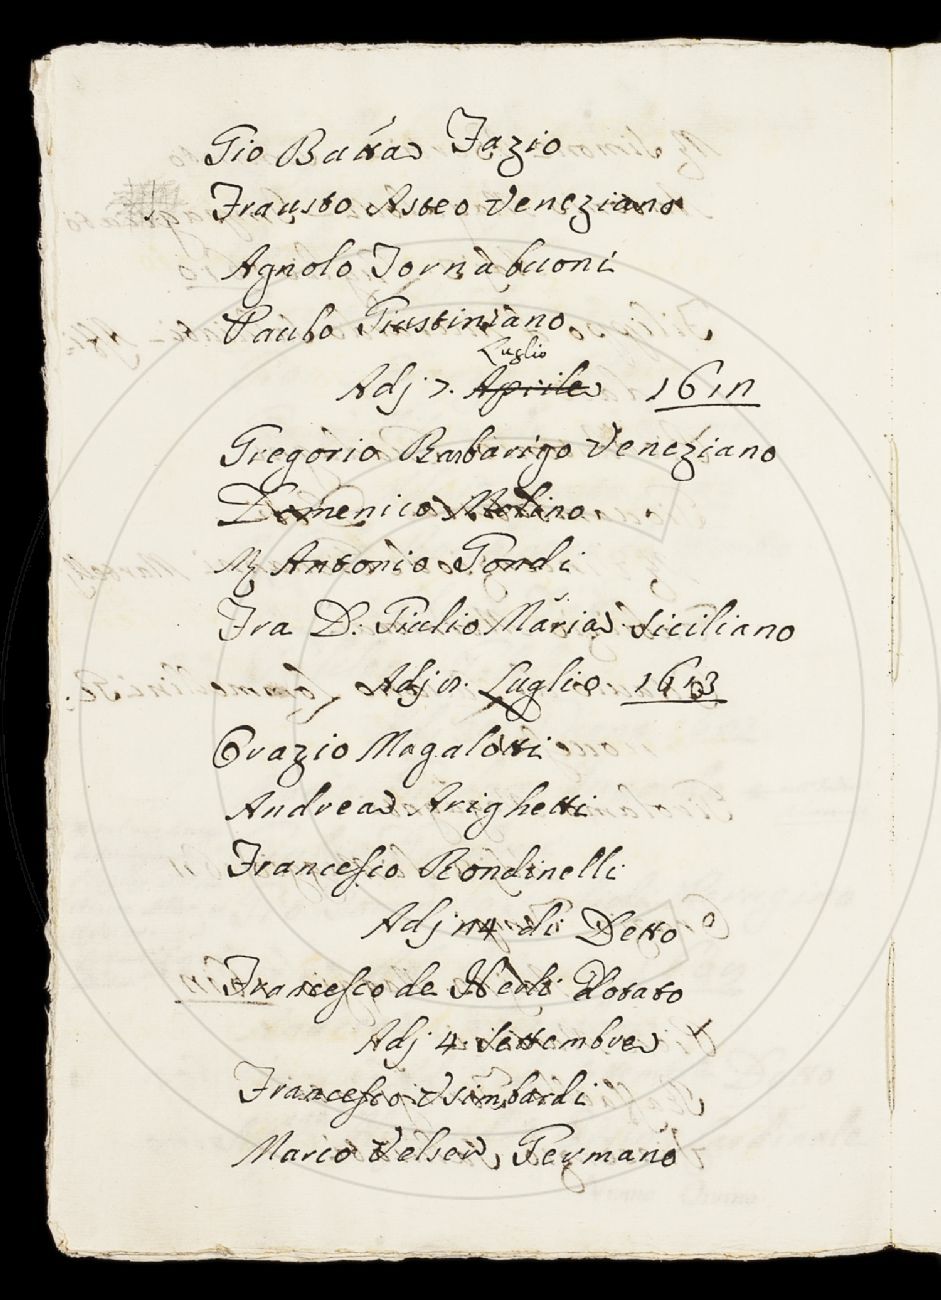 Gio Batta Fazio
Frausto Asteo Veneziano
Agnolo Tornabuoni
Paulo Giustiniano
Luglio
Adj 7. Aprile 1611
Gregorio Barbarigo Veneziano
Domenico Molino
Mr Antonio Gondi
Fra D. Giulio Maria Siciliano
Adj 11. Luglio 1613
Orazio Magalotti
Andrea Arighetti
Francesco Rondinelli
Adj 14 di Detto
Francesco de
Adj 4. Settembre
Francesco Usimbardi
Marco Velser, Germano